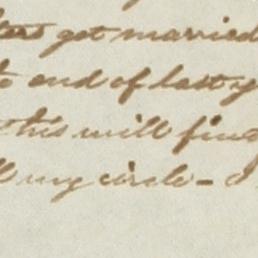 get married
end of last
this will find
my circle -